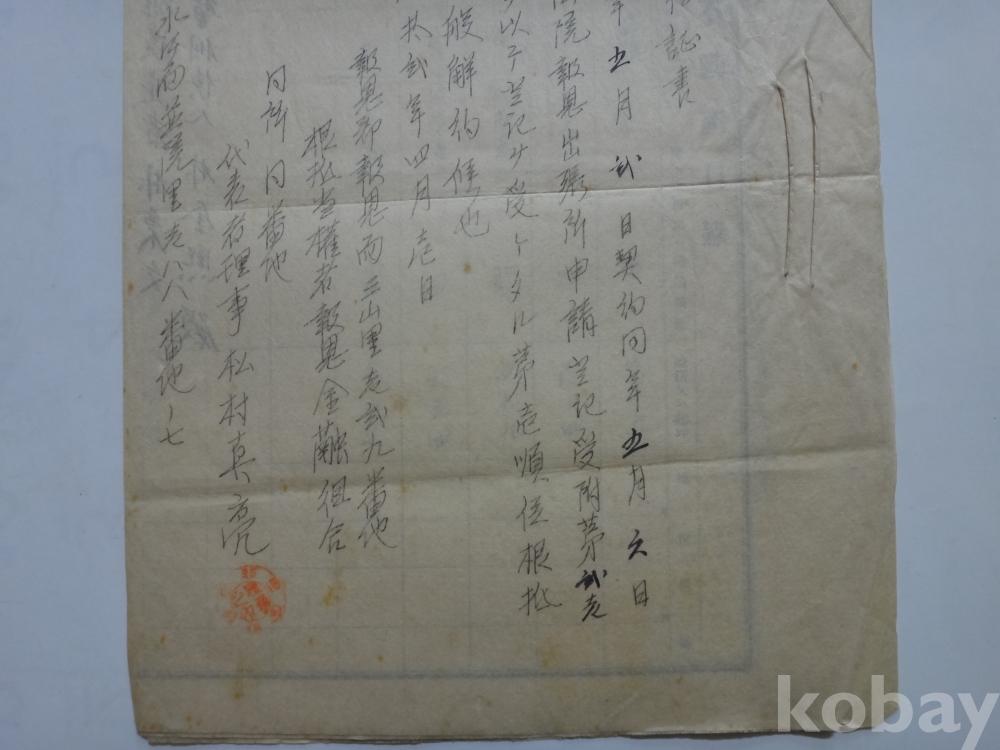 証書
年五月弐日契約同年五月六日
法院報恩出張所申請登記受附第弐壱
以テ登記ヲ受ケタル第壱順位根抵
般解約候也
拾弐年四月壱日
報恩郡報恩面三山里壱弐九番地
根抵当権者報恩金融組合
同所同番地
代表者理事松村真
水汗面並院里壱八八番地ノ七
kobay